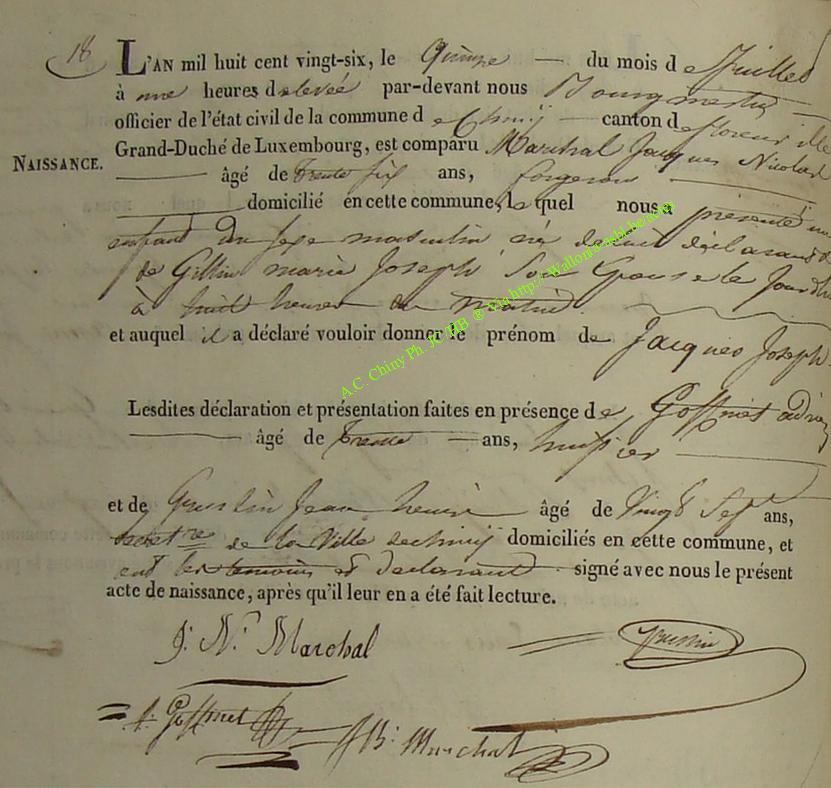 18
L'AN mil huit cent vingt-six, le Quinze du mois de Juillet
à une heures de levée par-devant nous Bourgmestre
officier de l'état civil de la commune de Chiny canton de florenville
NAISSANCE.
Grand-Duché de Luxembourg, est comparu Marchal Jacques Nicolas
âgé de trente six ans, forgeron
domicilié en cette commune, le quel nous a présenté un
enfant du sexe masculin né de lui déclarant &
de Gillin marie Joseph Son Epouse le Jourdhui
à huit heures du matin.
et auquel il a déclaré vouloir donner le prénom de Jacques Joseph
Lesdites déclaration et présentation faites en présence de Goffinet adrien
âgé de trente ans, huissier
et de Jean henri âgé de Vingt Sept ans,
secretre de la Ville de chiny domiciliés en cette commune, et
ont les temoins et declarant signé avec nous le présent
acte de naissance, après qu'il leur en a été fait lecture.
J. N. Marchal
A. Goffinet
JB. Marchal
A.C. Chiny Ph. JC HB ® via http://Wallonia-asbl.be